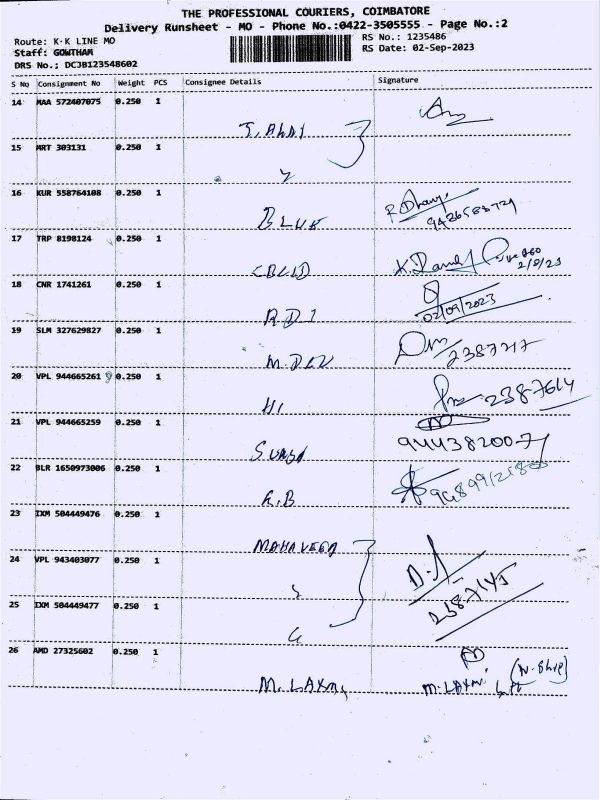 THE PROFESSIONAL COURIERS, COIMBATORE
Delivery Runsheet - MO - Phone No.:0422-3505555 - Page No.:2
Route: K·K LINE MO
RS No.: 1235486
Staff: GOWTHAM
RS Date: 02-Sep-2023
DRS No.; DCJB123548602
S No Consignment No Weight PCS Consignee Details Signature
14 MAA 572407075 0.250 1
15 MRT 303131 0.250 1
16 KUR 558764108 0.250 1
BLUE
17 TRP 8198124 0.250 1
18 CNR 1741261 0.250 1
02/09/2023
19 SLM 327629827 0.250 1
M. DEV
20 VPL 944665261 0.250 1
HI 238-7614
21 VPL 944665259 0.250 1
9443820071
22 BLR 1650973006 0.250 1
23 IXM 504449476 0.250 1
MAHAVEER
24 VPL 943403077 0.250 1
2387145
25 IXM 504449477 0.250 1
26 AMD 27325602 0.250 1
M. LAXMI M. LAXMI